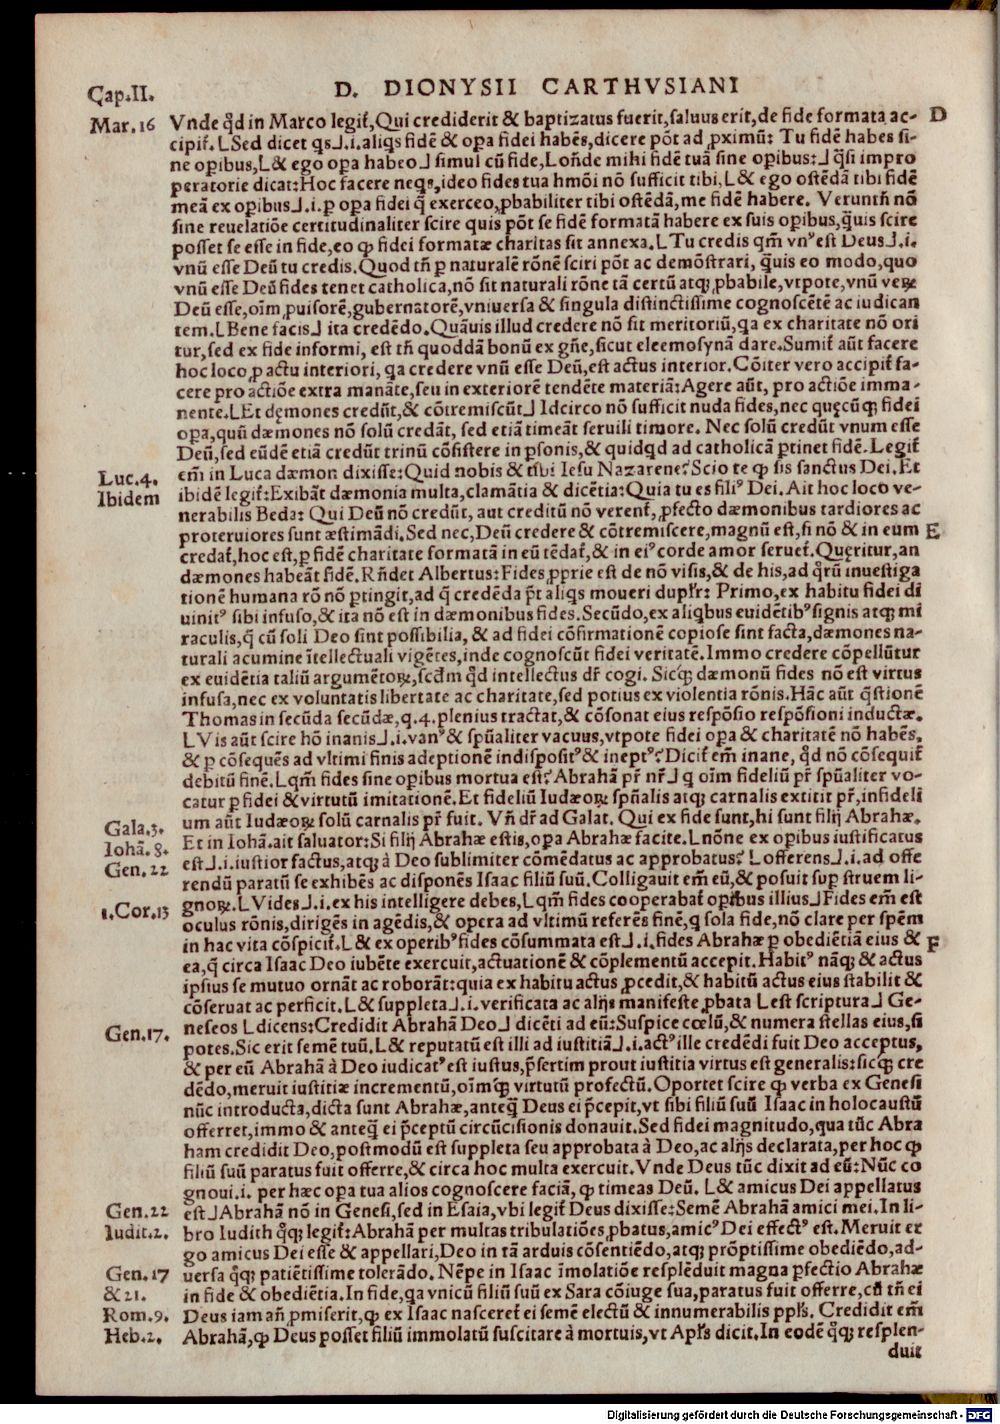 Cap.II.
D. DIONYSII CARTHVSIANI
Mar.16
Vnde q̃d in Marco legit̃, Qui crediderit & baptizatus fuerit, saluus erit, de fide formata ac-
D
cipit̃. L Sed dicet qs⅃.i. aliqs fidẽ & opa fidei habẽs, dicere põt ad pximũ: Tu fidẽ habes si-
ne opibus, L & ego opa habeo⅃ simul cũ fide, L oñde mihi fidẽ tuã sine opibus:⅃ q̃si impro
peratorie dicat: Hoc facere neqs, ideo fides tua hmõi nõ sufficit tibi, L & ego ostẽdã tibi fidẽ
meã ex opibus⅃.i. p opa fidei q̃ exerceo, pbabiliter tibi ostẽdã, me fidẽ habere. Veruntñ nõ
sine reuelatiõe certitudinaliter scire quis põt se fidẽ formatã habere ex suis opibus, q̃uis scire
posset se esse in fide, eo ꝙ fidei formatæ charitas sit annexa. L Tu credis qm̃ vnꝰ est Deus⅃.i.
vnũ esse Deũ tu credis. Quod tñ p naturalẽ rõnẽ sciri põt ac demõstrari, q̃uis eo modo, quo
vnũ esse Deũ fides tenet catholica, nõ sit naturali rõne tã certũ atqꝫ pbabile, vtpote, vnũ veꝝ
Deũ esse, oĩm puisorẽ, gubernatorẽ, vniuersa & singula distinctissime cognoscẽtẽ ac iudican
tem. L Bene facis⅃ ita credẽdo. Quãuis illud credere nõ sit meritoriũ, qa ex charitate nõ ori
tur, sed ex fide informi, est tñ quoddã bonũ ex gñe, sicut eleemosynã dare. Sumit̃ aũt facere
hoc loco p actu interiori, qa credere vnũ esse Deũ, est actus interior. Cõiter vero accipit̃ fa-
cere pro actiõe extra manãte, seu in exteriorẽ tendẽte materiã: Agere aũt, pro actiõe imma-
nente. L Et dęmones credũt, & cõtremiscũt⅃ Idcirco nõ sufficit nuda fides, nec quęcũqꝫ fidei
opa, quũ dæmones nõ solũ credãt, sed etiã timeãt seruili timore. Nec solũ credũt vnum esse
Deũ, sed eũdẽ etiã credũt trinũ cõsistere in psonis, & quidqd ad catholicã ptinet fidẽ. Legit̃
Luc.4.
em̃ in Luca dæmon dixisse: Quid nobis & tibi Iesu Nazarene? Scio te ꝙ sis sanctus Dei. Et
Ibidem
ibidẽ legit̃: Exibãt dæmonia multa, clamãtia & dicẽtia: Quia tu es filiꝰ Dei. Ait hoc loco ve-
nerabilis Beda: Qui Deũ nõ credũt, aut creditũ nõ verent̃, pfecto dæmonibus tardiores ac
proteruiores sunt æstimãdi. Sed nec, Deũ credere & cõtremiscere, magnũ est, si nõ & in eum
E
credat̃, hoc est, p fidẽ charitate formatã in eũ tẽdat̃, & in eiꝰ corde amor seruet̃. Quęritur, an
dæmones habeãt fidẽ. Rñdet Albertus: Fides pprie est de nõ visis, & de his, ad q̃rũ inuestiga
tionẽ humana rõ nõ ptingit, ad q̃ credẽda p̃t aliqs moueri dupl̃r: Primo, ex habitu fidei di
uinitꝰ sibi infuso, & ita nõ est in dæmonibus fides. Secũdo, ex aliqbus euidẽtibꝰ signis atqꝫ mi
raculis, q̃ cũ soli Deo sint possibilia, & ad fidei cõfirmationẽ copiose sint facta, dæmones na-
turali acumine ĩtellectuali vigẽtes, inde cognoscũt fidei veritatẽ. Immo credere cõpellũtur
ex euidẽtia taliũ argumẽtoꝝ, scdm q̃d intellectus dr̃ cogi. Sicqꝫ dæmonũ fides nõ est virtus
infusa, nec ex voluntatis libertate ac charitate, sed potius ex violentia rõnis. Hãc aũt q̃stionẽ
Thomas in secũda secũdæ, q.4. plenius tractat, & cõsonat eius respõsio respõsioni inductæ.
L Vis aũt scire hõ inanis⅃.i. vanꝰ & spũaliter vacuus, vtpote fidei opa & charitatẽ nõ habẽs,
& p cõsequẽs ad vltimi finis adeptionẽ indispositꝰ & ineptꝰ? Dicit̃ em̃ inane, q̃d nõ cõsequit̃
debitũ finẽ. L qm̃ fides sine opibus mortua est? Abrahã pr̃ nr̃⅃ q oĩm fideliũ pr̃ spũaliter vo-
catur p fidei & virtutũ imitationẽ. Et fideliũ Iudæoꝝ spũalis atqꝫ carnalis extitit pr̃, infideli
Gala.3.
um aũt Iudæoꝝ solũ carnalis pr̃ fuit. Vñ dr̃ ad Galat. Qui ex fide sunt, hi sunt filij Abrahæ.
Iohã. 8.
Et in Iohã. ait saluator: Si filij Abrahæ estis, opa Abrahæ facite. L nõne ex opibus iustificatus
Gen.22
est⅃.i. iustior factus, atqꝫ à Deo sublimiter cõmẽdatus ac approbatus? L offerens⅃.i. ad offe
rendũ paratũ se exhibẽs ac disponẽs Isaac filiũ suũ. Colligauit em̃ eũ, & posuit sup struem li-
1.Cor.13
gnoꝝ. L Vides⅃.i. ex his intelligere debes, L qm̃ fides cooperabat̃ opibus illius⅃ Fides em̃ est
oculus rõnis, dirigẽs in agẽdis, & opera ad vltimũ referẽs finẽ, q sola fide, nõ clare per spẽm
in hac vita cõspicit̃. L & ex operibꝰ fides cõsummata est⅃.i. fides Abrahæ p obediẽtiã eius &
F
ea, q̃ circa Isaac Deo iubẽte exercuit, actuationẽ & cõplementũ accepit. Habitꝰ nãqꝫ & actus
ipsius se mutuo ornãt ac roborãt: quia ex habitu actus pcedit, & habitũ actus eius stabilit &
cõseruat ac perficit. L & suppleta⅃.i. verificata ac alijs manifeste pbata L est scriptura⅃ Ge-
Gen.17.
neseos L dicens: Credidit Abrahã Deo⅃ dicẽti ad eũ: Suspice cœlũ, & numera stellas eius, si
potes. Sic erit semẽ tuũ. L & reputatũ est illi ad iustitiã⅃.i. actꝰ ille credẽdi fuit Deo acceptus,
& per eũ Abrahã à Deo iudicatꝰ est iustus, p̃sertim prout iustitia virtus est generalis: sicqꝫ cre
dẽdo, meruit iustitiæ incrementũ, oĩmqꝫ virtutũ profectũ. Oportet scire ꝙ verba ex Genesi
nũc introducta, dicta sunt Abrahæ, anteq̃ Deus ei p̃cepit, vt sibi filiũ suũ Isaac in holocaustũ
offerret, immo & anteq̃ ei p̃ceptũ circũcisionis donauit. Sed fidei magnitudo, qua tũc Abra
ham credidit Deo, postmodũ est suppleta seu approbata à Deo, ac alijs declarata, per hoc ꝙ
filiũ suũ paratus fuit offerre, & circa hoc multa exercuit. Vnde Deus tũc dixit ad eũ: Nũc co
gnoui.i. per hæc opa tua alios cognoscere faciã, ꝙ timeas Deũ. L & amicus Dei appellatus
Gen.22
est⅃ Abrahã nõ in Genesi, sed in Esaia, vbi legit̃ Deus dixisse: Semẽ Abrahã amici mei. In li-
Iudit.2.
bro Iudith q̃qꝫ legit̃: Abrahã per multas tribulatiões pbatus, amicꝰ Dei effectꝰ est. Meruit er
go amicus Dei esse & appellari, Deo in tã arduis cõsentiẽdo, atqꝫ prõptissime obediẽdo, ad-
Gen.17
uersa q̃qꝫ patiẽtissime tolerãdo. Nẽpe in Isaac ĩmolatiõe resplẽduit magna pfectio Abrahæ
& 21.
in fide & obediẽtia. In fide, qa vnicũ filiũ suũ ex Sara cõiuge sua, paratus fuit offerre, cũ tñ ei
Rom.9.
Deus iam añ pmiserit, ꝙ ex Isaac nasceret̃ ei semẽ electũ & innumerabilis ppl̃s. Credidit em̃
Heb.2.
Abrahã, ꝙ Deus posset filiũ immolatũ suscitare à mortuis, vt Apl̃s dicit. In eodẽ q̃qꝫ resplen-
duit
Digitalisierung gefördert durch die Deutsche Forschungsgemeinschaft - DFG